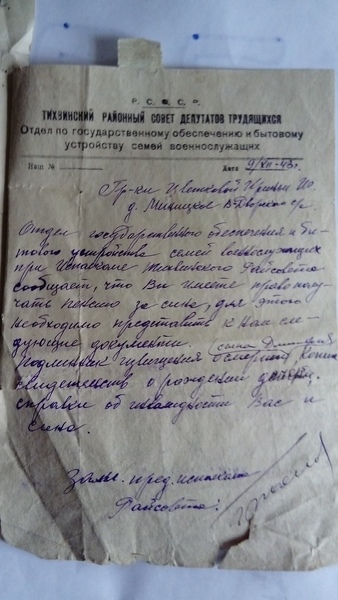 Р. С. Ф. С. Р.
ТИХВИНСКИЙ РАЙОННЫЙ СОВЕТ ДЕПУТАТОВ ТРУДЯЩИХСЯ
Отдел по государственному обеспечению и бытовому
устройству семей военнослужащих
Наш № Дата 9/VII-43г.
Гр-ки Цветковой Ирины
д.
Отдел государственного обеспечения и бы-
тового устройства семей военнослужащих
при Исполкоме Тихвинского Райсовета
сообщает, что Вы имеете право полу-
чать пенсию за сина, для этого
необходимо представить к нам сле-
дующие документы.
(сына Дмитрия)
подлинник извещения о смерти, копии
свидетельств о рождении детей,
справки об инвалидности Вас и
сына.
Зам. пред. исполкома
Райсовета: